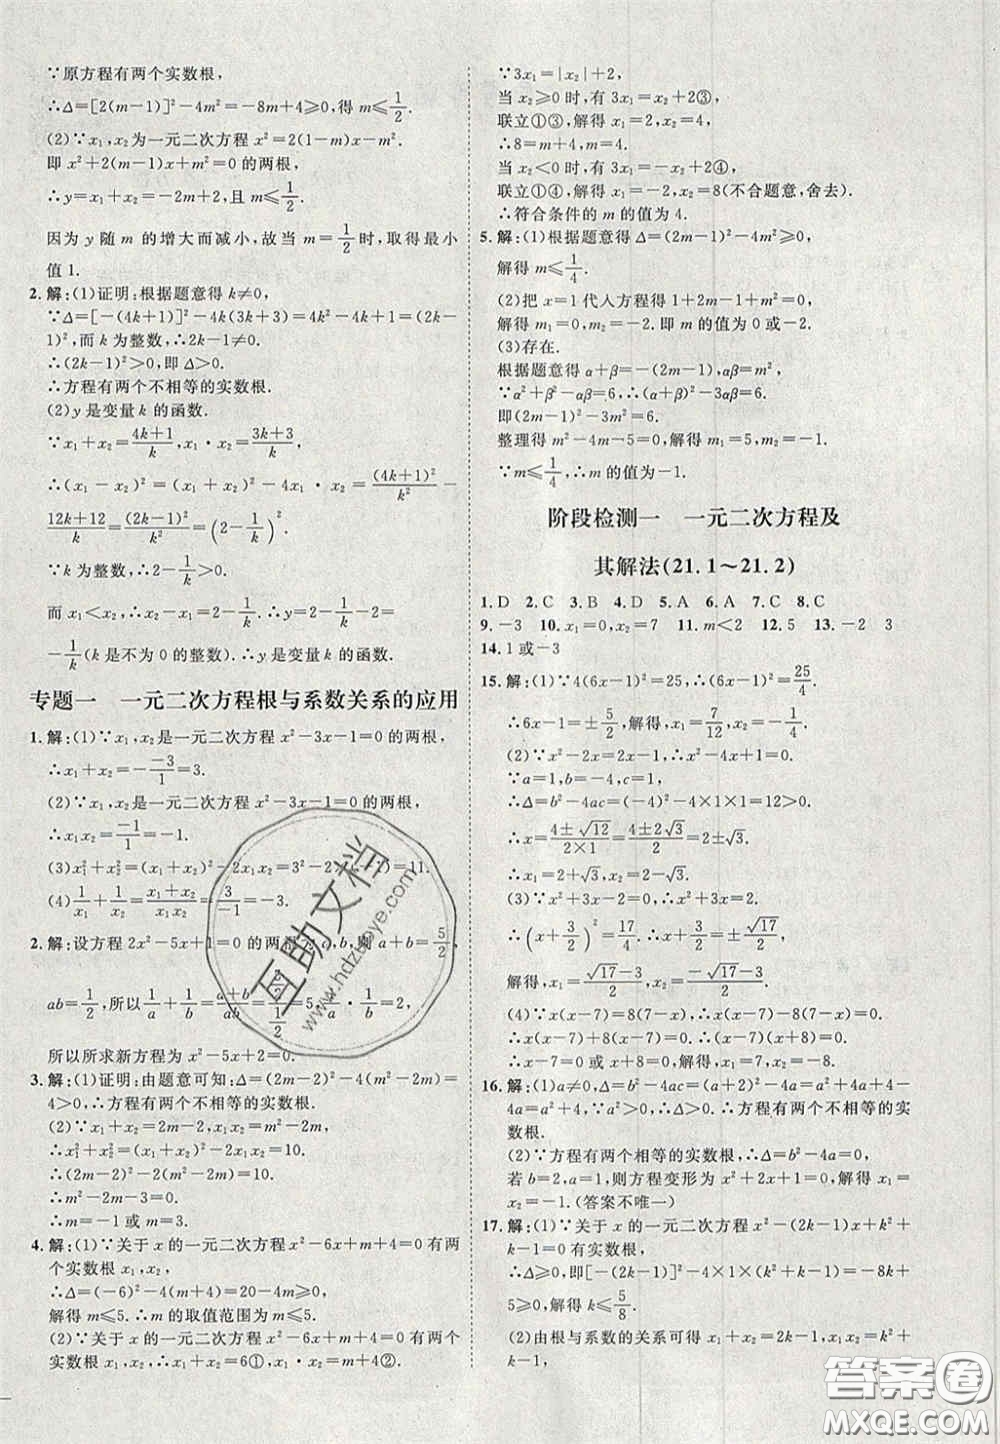 ∵原方程有两个实数根，
∴Δ=[2(m−1)]²−4m²=−8m+4⩾0，得 m⩽1/2.
(2)∵x₁，x₂为一元二次方程 x²=2(1−m)x−m².
即 x²+2(m−1)x+m²=0 的两根，
∴y=x₁+x₂=−2m+2，且 m⩽1/2.
因为 y 随 m 的增大而减小，故当 m=1/2时，取得最小
值 1.
2.解：(1)证明：根据题意得 k≠0，
∵Δ=[−(4k+1)]²−4k(3k+3)=4k²−4k+1=(2k−
1)²，而 k 为整数，∴2k−1≠0.
∴(2k−1)²>0，即 Δ>0.
∴方程有两个不相等的实数根.
(2)y 是变量 k 的函数.
∵x₁+x₂=(4k+1)/k，x₁·x₂=(3k+3)/k，
∴(x₁−x₂)²=(x₁+x₂)²−4x₁·x₂=(4k+1)²/k²−
(12k+12)/k=(2k−1)²/k²=(2−1/k)².
∵k 为整数，∴2−1/k>0.
而 x₁<x₂，∴x₂−x₁=2−1/k. ∴y=2−1/k−2=
−1/k(k 是不为 0 的整数). ∴y 是变量 k 的函数.
专题一 一元二次方程根与系数关系的应用
1.解：(1)∵x₁，x₂是一元二次方程 x²−3x−1=0 的两根，
∴x₁+x₂=−(−3)/1=3.
(2)∵x₁，x₂是一元二次方程 x²−3x−1=0 的两根，
∴x₁x₂=−1/1=−1.
(3)x₁²+x₂²=(x₁+x₂)²−2x₁x₂=3²−2×(−1)=11.
(4)1/x₁+1/x₂=(x₁+x₂)/(x₁x₂)=3/−1=−3.
2.解：设方程 2x²−5x+1=0 的两根为 a，b，则 a+b=5/2，
ab=1/2，所以1/a+1/b=(a+b)/ab=(5/2)/(1/2)=5，1/a·1/b=2，
所以所求新方程为 x²−5x+2=0.
3.解：(1)证明：由题意可知：Δ=(2m−2)²−4(m²−2m)=
4>0，∴方程有两个不相等的实数根.
(2)∵x₁+x₂=2m−2，x₁x₂=m²−2m，
∴x₁²+x₂²=(x₁+x₂)²−2x₁x₂=10.
∴(2m−2)²−2(m²−2m)=10.
∴m²−2m−3=0.
∴m=−1 或 m=3.
4.解：(1)∵关于 x 的一元二次方程 x²−6x+m+4=0 有两
个实数根 x₁，x₂，
∴Δ=(−6)²−4(m+4)=20−4m⩾0，
解得 m⩽5. ∴m 的取值范围为 m⩽5.
(2)∵关于 x 的一元二次方程 x²−6x+m+4=0 有两个
实数根 x₁，x₂，∴x₁+x₂=6①，x₁x₂=m+4②.
∵3x₁=|x₂|+2，
当 x₂⩾0 时，有 3x₁=x₂+2③，
联立①③，解得 x₁=2，x₂=4，
∴8=m+4，∴m=4.
当 x₂<0 时，有 3x₁=−x₂+2④，
联立①④，解得 x₁=−2，x₂=8(不合题意，舍去).
∴符合条件的 m 的值为 4.
5.解：(1)根据题意得 Δ=(2m−1)²−4m²⩾0，
解得 m⩽1/4.
(2)把 x=1 代入方程得 1+2m−1+m²=0，
解得 m₁=0，m₂=−2. 即 m 的值为 0 或−2.
(3)存在.
根据题意得 α+β=−(2m−1)，αβ=m².
∵α²+β²−αβ=6，∴(α+β)²−3αβ=6.
即(2m−1)²−3m²=6.
整理得 m²−4m−5=0，解得 m₁=5，m₂=−1.
∵m⩽1/4，∴m 的值为−1.
阶段检测一 一元二次方程及
其解法(21.1～21.2)
1.D 2.C 3.B 4.D 5.A 6.A 7.C 8.C
9.−3 10.x₁=0，x₂=7 11.m<2 12.5 13.−2 3
14.1 或−3
15.解：(1)∵4(6x−1)²=25，∴(6x−1)²=25/4.
∴6x−1=±5/2，解得，x₁=7/12，x₂=−1/4.
(2)∵x²−2x=2x−1，∴x²−4x+1=0.
∵a=1，b=−4，c=1，
∴Δ=b²−4ac=(−4)²−4×1×1=12>0.
∴x=(4±√12)/(2×1)=(4±2√3)/2=2±√3.
∴x₁=2+√3，x₂=2−√3.
(3)∵x²+3x−2=0，∴x²+3x=2.
∴(x+3/2)²=17/4. ∴x+3/2=±√17/2.
解得，x₁=(√17−3)/2，x₂=(−√17−3)/2.
(4)∵x(x−7)=8(7−x)，∴x(x−7)−8(7−x)=0.
∴x(x−7)+8(x−7)=0. ∴(x−7)(x+8)=0.
∴x−7=0 或 x+8=0. 解得，x₁=7，x₂=−8.
16.解：(1)a≠0，Δ=b²−4ac=(a+2)²−4a=a²+4a+4−
4a=a²+4，∵a²>0，∴Δ>0. ∴方程有两个不相等的实
数根.
(2)∵方程有两个相等的实数根，∴Δ=b²−4a=0，
若 b=2，a=1，则方程变形为 x²+2x+1=0，解得 x₁=
x₂=−1.(答案不唯一)
17.解：(1)∵关于 x 的一元二次方程 x²−(2k−1)x+k²+
k−1=0 有实数根，
∴Δ⩾0，即[−(2k−1)]²−4×1×(k²+k−1)=−8k+
5⩾0，解得 k⩽5/8.
(2)由根与系数的关系可得 x₁+x₂=2k−1，x₁x₂=k²
+k−1，
互助文档
www.hdzuoye.com
答案圈
MXQE.COM